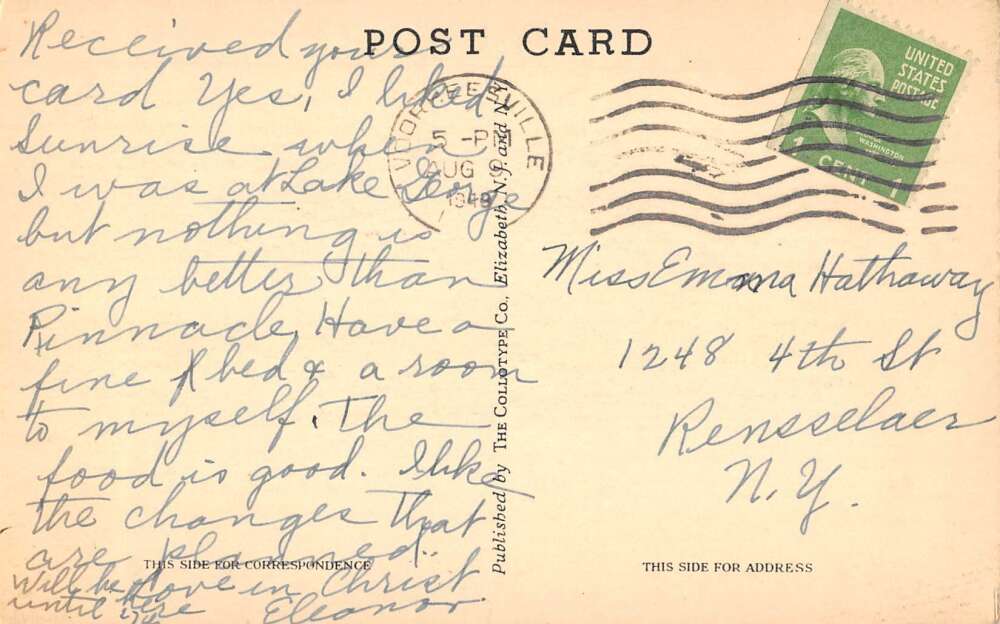 POST CARD
Received your
card Yes, I liked
Sunrise when
I was at Lake George
but nothing is
any better than
Pinnacle, Have a
fine bed & a room
to myself. The
food is good. I like
the changes that
are planned..
Love in Christ
Eleanor
Will be here
until
THIS SIDE FOR CORRESPONDENCE
Published by THE COLLOTYPE CO., Elizabeth, N.J. and N.Y.
VOORHEESVILLE
5 - PM
AUG
194
UNITED
STATES
POSTAGE
WASHINGTON
1 CENT 1
Miss Emma Hathaway
1248 4th St
Rensselaer
N.Y.
THIS SIDE FOR ADDRESS